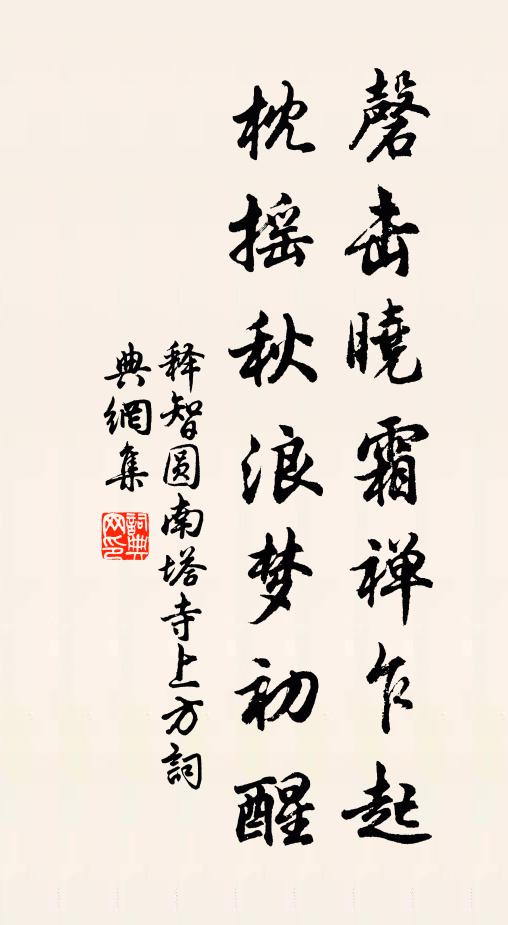 磬击曉霜禅乍起
枕摇秋浪梦初醒
释智圆南塔寺上方詞
典網集
詞典网印